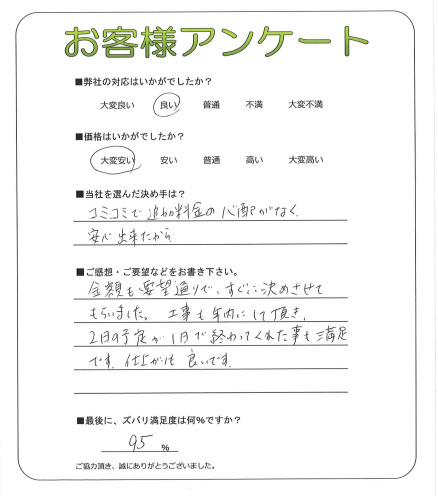 お客様アンケート
■弊社の対応はいかがでしたか?
大変良い 良い 普通 不満 大変不満
■価格はいかがでしたか?
大変安い 安い 普通 高い 大変高い
■当社を選んだ決め手は?
コミコミで追加料金の心配がなく、
安心出来たから
■ご感想・ご要望などをお書き下さい。
金額も要望通りで、すぐに決めさせて
もらいました。工事も年内にして頂き、
2日の予定が1日で終わってくれた事も満足
です。仕上がりも良いです。
■最後に、ズバリ満足度は何%ですか?
95 %
ご協力頂き、誠にありがとうございました。